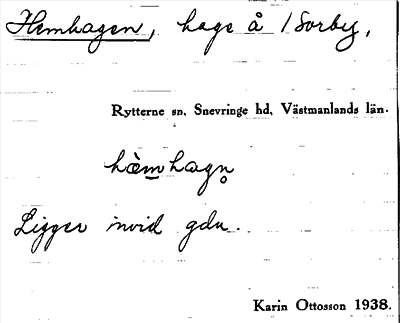 Hemhagen, hage å 1 Sorby,
Rytterne sn, Snevringe hd, Västmanlands län.
hæ̀mhagn̥
Ligger invid gdn.
Karin Ottosson 1938.